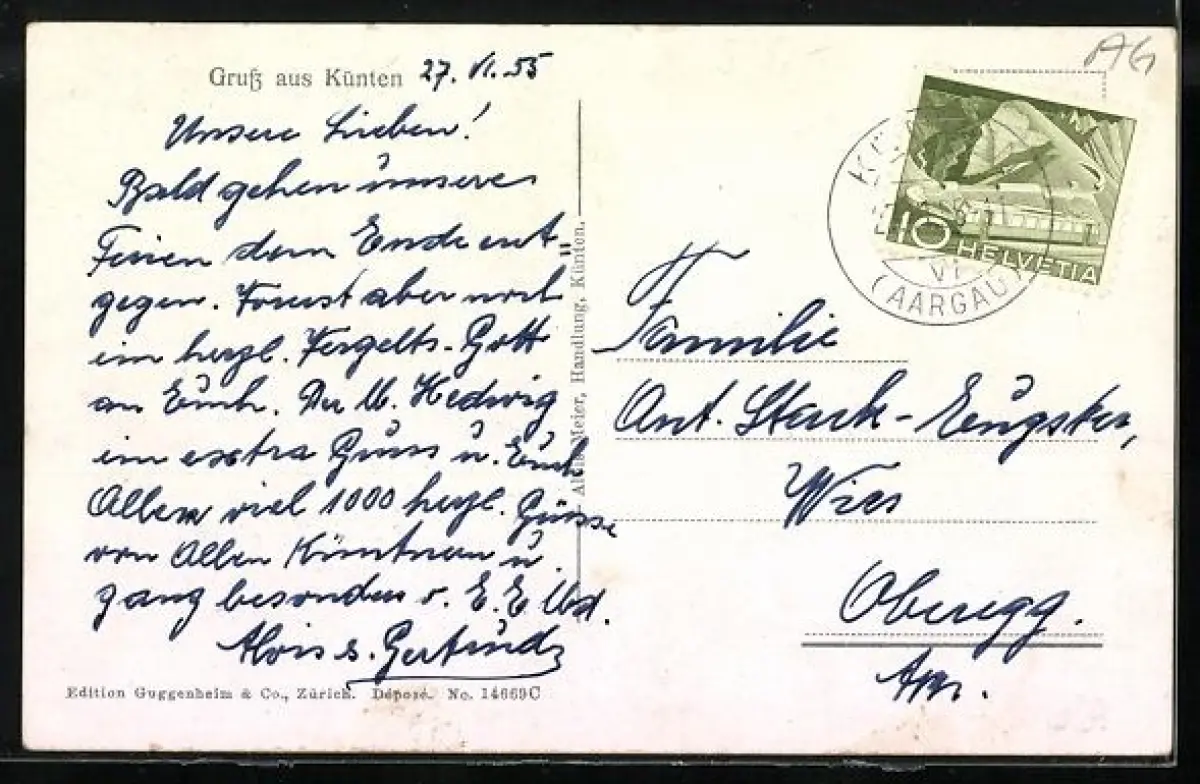 Gruß aus Künten 27. VI. 55
Unsere Lieben!
Bald gehen unsere
Ferien dem Ende ent-
gegen. Vorerst aber noch
ein herzl. Vergelts-Gott
an Euch. Der lb. Hedwig
ein extra Gruss u. Euch
Allen viel 1000 herzl. Grüsse
von Allen Küntnern u.
ganz besonders v. E. E. lbd.
Alois s. Gertrud
Edition Guggenheim & Co., Zürich. Déposé. No. 14669C
Meier, Handlung, Künten.
AG
10 HELVETIA
VI
(AARGAU)
Familie
Ant. Stark-Eugster,
Wies
Oberegg.